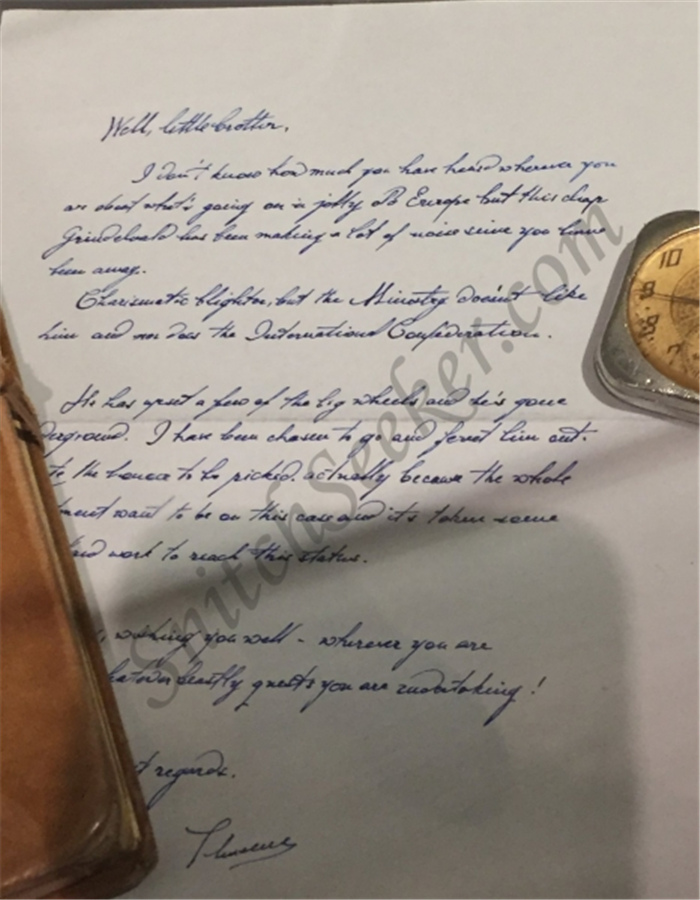 Well, little brother,
I don't know how much you have heard wherever you
are about what's going on in jolly Europe but this chap
Grindelwald has been making a lot of noise since you have
been away.
Charismatic blighter, but the Ministry doesn't like
him and nor does the International Confederation.
He has upset a few of the big wheels and he's gone
erground. I have been chosen to go and ferret him out.
the honour to be picked actually because the whole
ment want to be on this case and it's taken some
hard work to reach this status.
wishing you well - wherever you are
hatever beastly quests you are undertaking!
t regards.
Theseus
10
SnitchSeeker.com